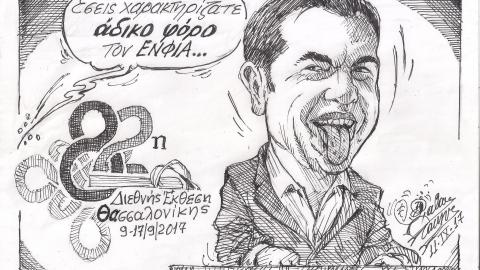 Εσείς χαρακτηρίζατε
άδικο φόρο
τον ΕΝΦΙΑ...
82η
Διεθνής Έκθεση
Θασσαλονίκης
9-17/9/2017
11.IX.17